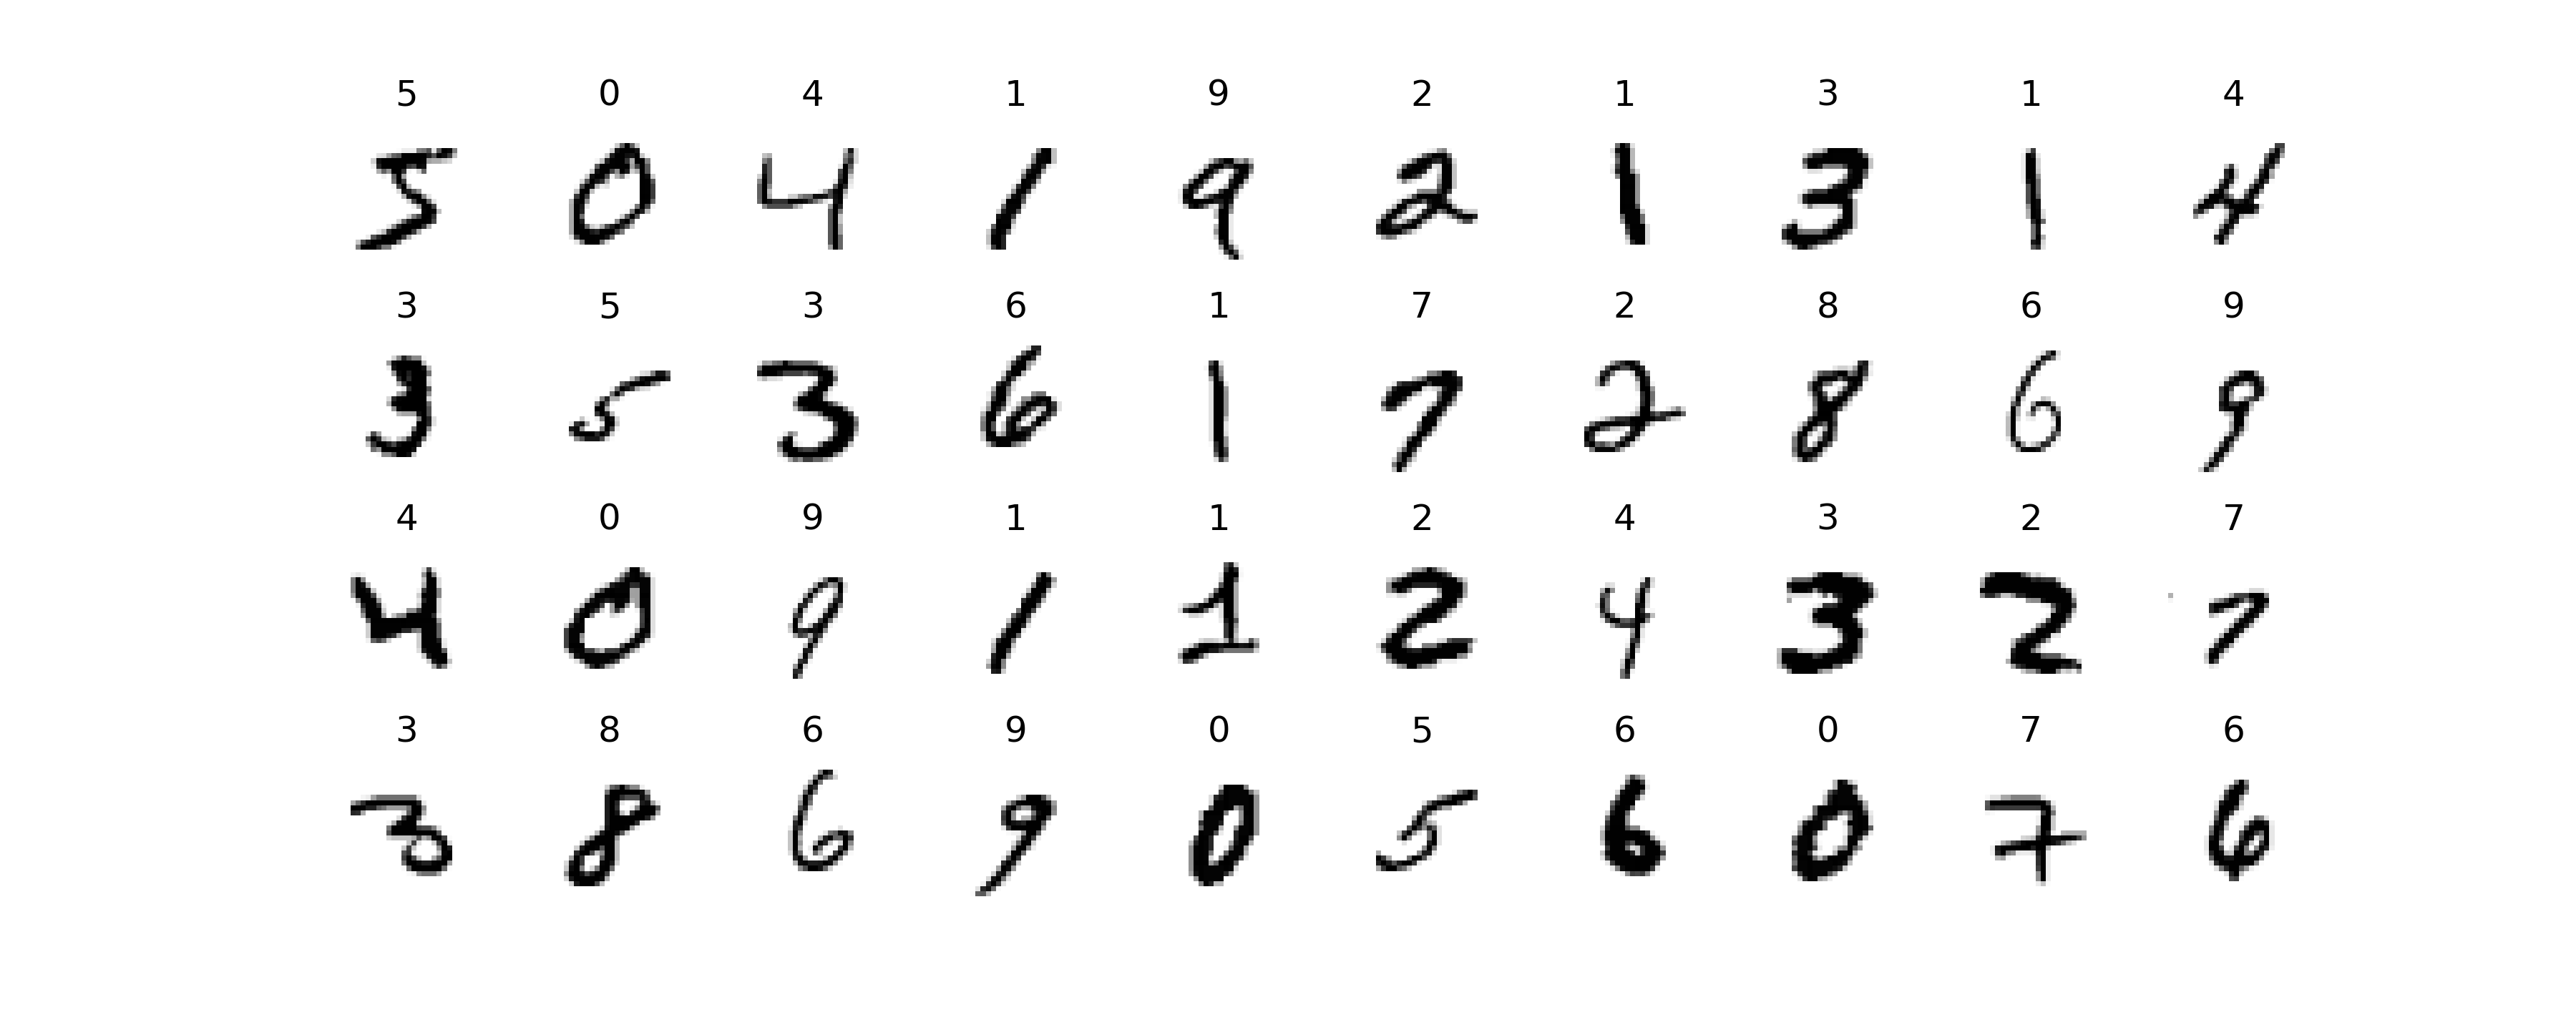 5 0 4 1 9 2 1 3 1 4
5 0 4 1 9 2 1 3 1 4
3 5 3 6 1 7 2 8 6 9
3 5 3 6 1 7 2 8 6 9
4 0 9 1 1 2 4 3 2 7
4 0 9 1 1 2 4 3 2 7
3 8 6 9 0 5 6 0 7 6
3 8 6 9 0 5 6 0 7 6